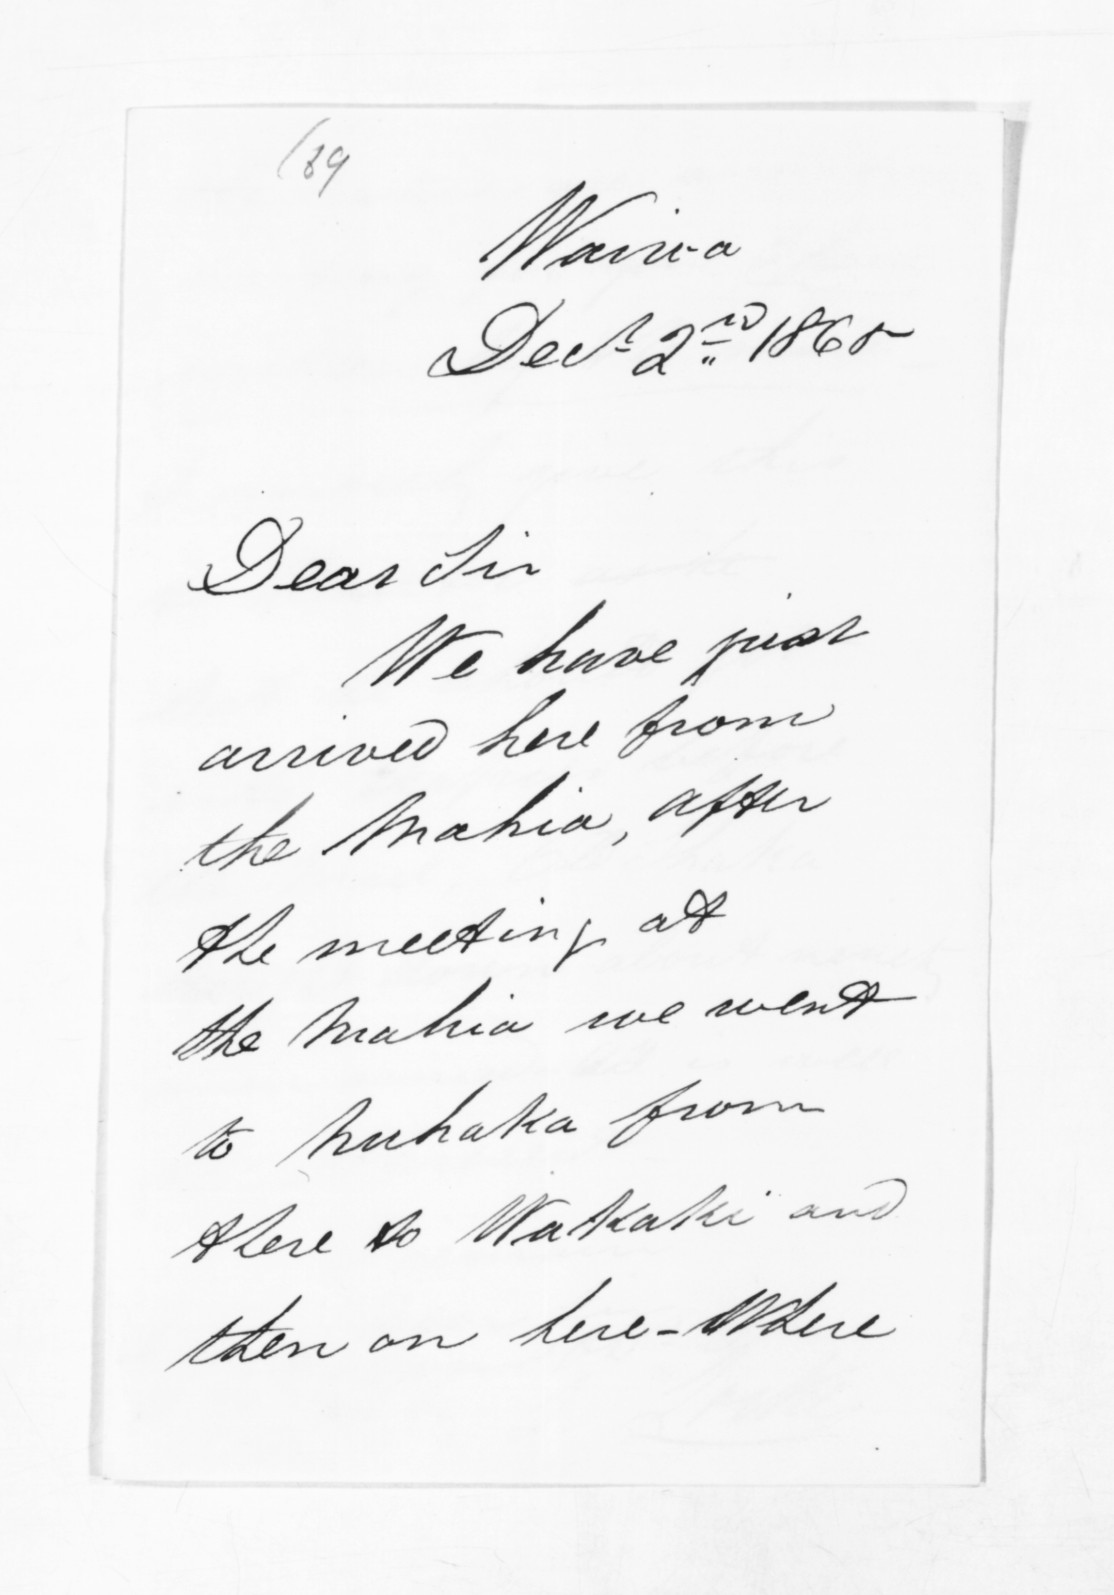 189
Wairoa
Decr 2nd 1865
Dear Sir
We have just
arrived here from
the Mahia, after
the meeting at
the Mahia we went
to Nuhaka from
there to Wakaki and
then on here - Where